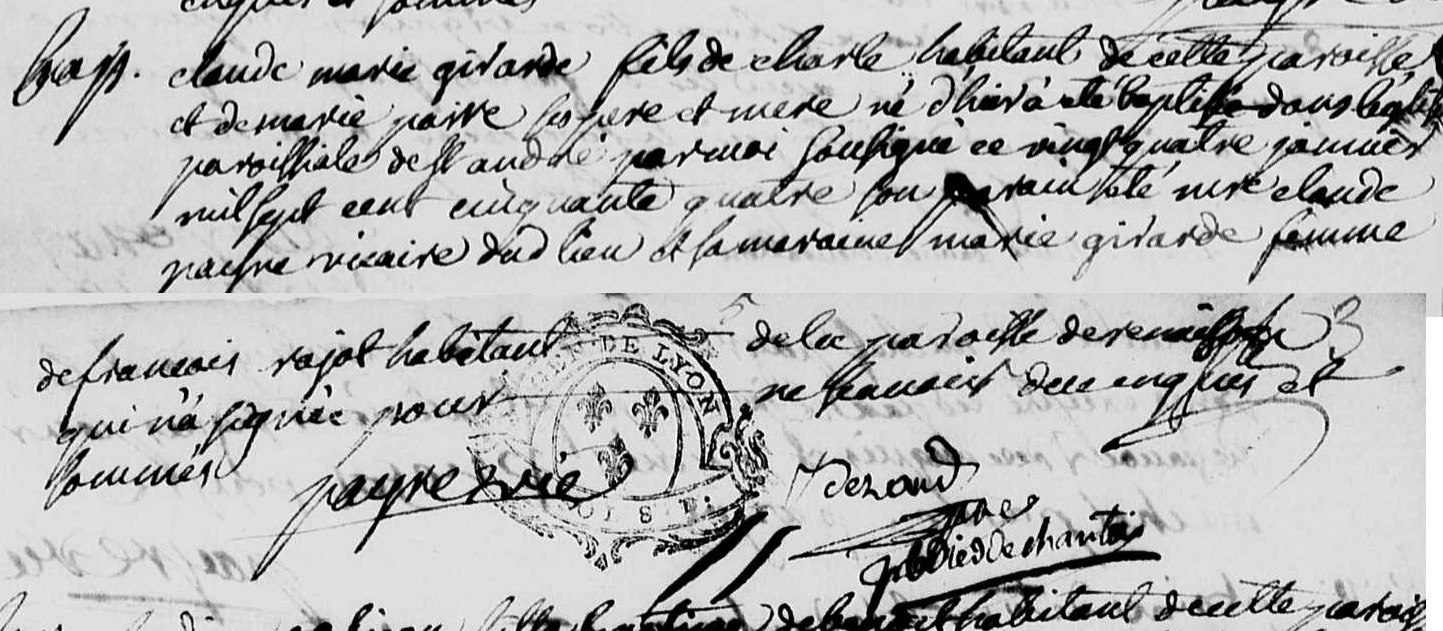 enquis et sommés
bap. claude marie girarde fils de charle habitant de cette paroisse
et de marie paire ses pere et mere né d'hier à été baptisé dans leglise
paroissiale de st andré par moi soussigné ce vingt quatre janvier
mil sept cent cinquante quatre son parain à été mre claude
payre vicaire dud lieu et sa maraine marie girarde femme
de francois rajot habitant de la paroisse de renaison
qui n'a signée pour ne scavoir de ce enquis et
sommés payre vic
DE LYON
denand
pbr Died de chantois
de benoit habitant de cette parois